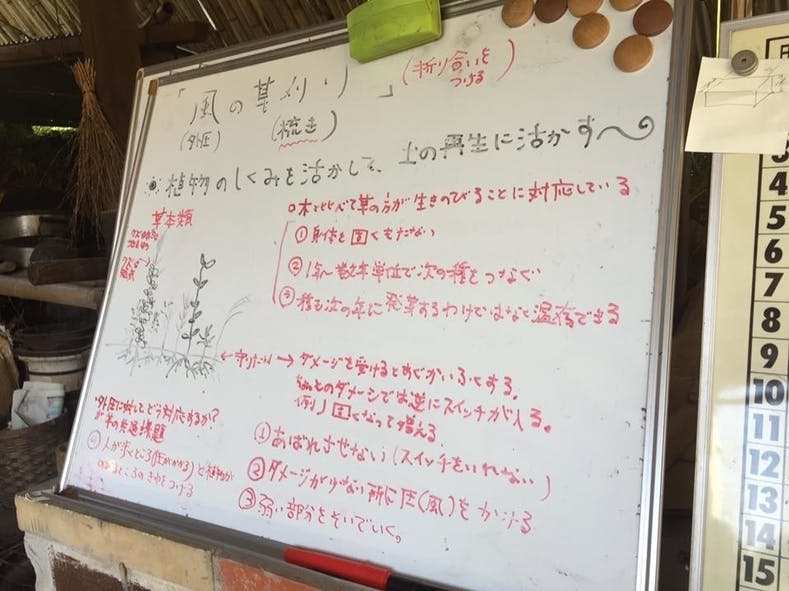 「風の草刈り」
(折り合いを
つける)
(外圧)
(梳き)
植物のしくみを活かして、土の再生に活かす〜
草本類
○木と比べて草の方が生きのびることに対応している
①身体を固くもたない
②1年〜数年単位で次の種をつなぐ
③種も次の年に発芽するわけではなく温存できる
→ダメージを受けると
ちょっとのダメージでは逆にスイッチが入る。
例)固くなって増える
外圧に対してどう対応するか?
が草の共通課題
人が歩くところ(圧がかかる)と植物が
ところのきわをつける
①あばれさせない(スイッチをいれない)
②ダメージが少ない所に圧(風)をかける
③弱い部分をそいでいく。
4
5
6
7
8
9
10
11
12
13
14
15